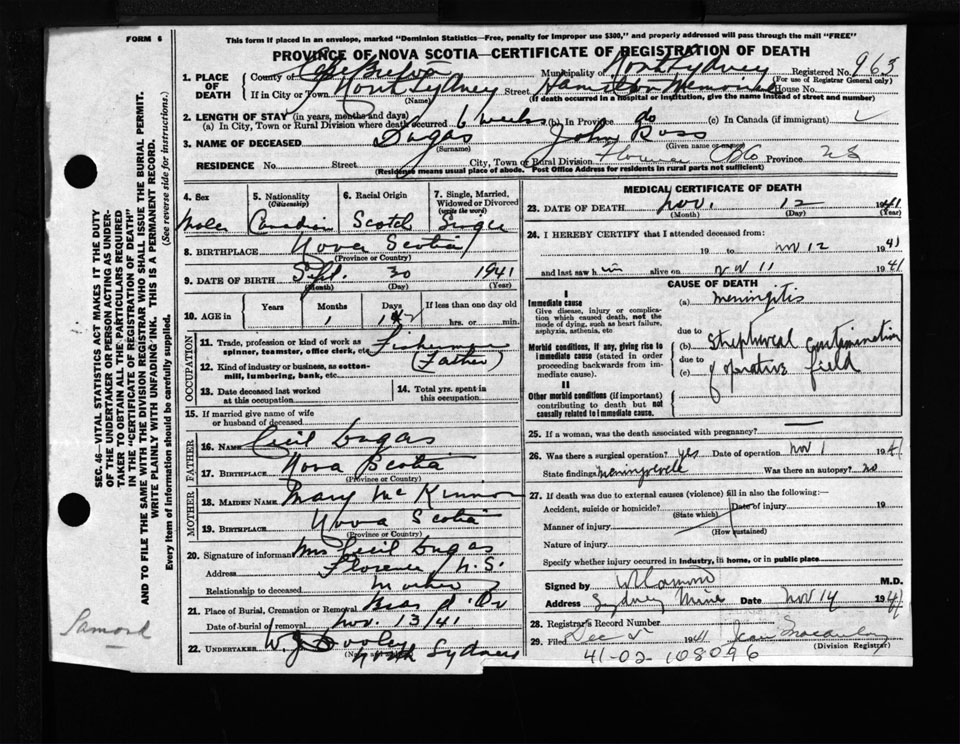 FORM 6
This form if placed in an envelope, marked "Dominion Statistics—Free, penalty for improper use $300," and properly addressed will pass through the mail "FREE"
PROVINCE OF NOVA SCOTIA—CERTIFICATE OF REGISTRATION OF DEATH
1. PLACE OF DEATH
County of Cape Breton Municipality of North Sydney Registered No. 963
(For use of Registrar General only)
If in City or Town North Sydney Street Hamilton Memorial House No.
(Name) (If death occurred in a hospital or institution, give the name instead of street and number)
2. LENGTH OF STAY (in years, months and days)
(a) In City, Town or Rural Division where death occurred 6 weeks (b) In Province do (c) In Canada (if immigrant)
3. NAME OF DECEASED Dugas John Ross
(Surname) (Given name or names)
RESIDENCE No. Street City, Town or Rural Division Florence CBCo Province NS
(Residence means usual place of abode. Post Office Address for residents in rural parts not sufficient)
4. Sex
Male
5. Nationality
(Citizenship)
Canadian
6. Racial Origin
Scotch
7. Single, Married, Widowed or Divorced
(write the word)
Single
8. BIRTHPLACE Nova Scotia
(Province or Country)
9. DATE OF BIRTH Sept. 30 1941
(Month) (Day) (Year)
10. AGE in Years Months Days If less than one day old
1 12 hrs. or min.
OCCUPATION
11. Trade, profession or kind of work as spinner, teamster, office clerk, etc. Fisherman
12. Kind of industry or business, as cotton-mill, lumbering, bank, etc. (Father)
13. Date deceased last worked at this occupation
14. Total yrs. spent in this occupation
15. If married give name of wife or husband of deceased
FATHER
16. NAME Cecil Dugas
17. BIRTHPLACE Nova Scotia
(Province or Country)
MOTHER
18. MAIDEN NAME Mary McKinnon
19. BIRTHPLACE Nova Scotia
(Province or Country)
20. Signature of informant Mrs Cecil Dugas
Address Florence N.S.
Relationship to deceased Mother
21. Place of Burial, Cremation or Removal Bras d'Or
Date of burial or removal Nov. 13/41
22. UNDERTAKER W. J. Dooley
North Sydney
MEDICAL CERTIFICATE OF DEATH
23. DATE OF DEATH Nov. 12 1941
(Month) (Day) (Year)
24. I HEREBY CERTIFY that I attended deceased from:
19 to Nov 12 1941
and last saw him alive on Nov 11 1941
CAUSE OF DEATH
I
Immediate cause
Give disease, injury or complication which caused death, not the mode of dying, such as heart failure, asphyxia, asthenia, etc
(a) Meningitis
due to
Morbid conditions, if any, giving rise to immediate cause (stated in order proceeding backwards from immediate cause).
(b) contamination
due to
(c) of operative field
II
Other morbid conditions (if important) contributing to death but not causally related to immediate cause.
25. If a woman, was the death associated with pregnancy?
26. Was there a surgical operation? yes Date of operation Nov 1 1941
State findings Was there an autopsy? no
27. If death was due to external causes (violence) fill in also the following:—
Accident, suicide or homicide? Date of injury 19
(State which)
Manner of injury
(How sustained)
Nature of injury
Specify whether injury occurred in Industry, in home, or in public place
Signed by M.D.
Address Sydney Mines Date Nov 14 1941
28. Registrar's Record Number
29. Filed Dec 5 1941 Jean Macaulay
(Division Registrar)
41-02-108096
SEC. 46—VITAL STATISTICS ACT MAKES IT THE DUTY
OF THE UNDERTAKER OR PERSON ACTING AS UNDER-
TAKER TO OBTAIN ALL THE PARTICULARS REQUIRED
IN THE "CERTIFICATE OF REGISTRATION OF DEATH"
AND TO FILE THE SAME WITH THE DIVISION REGISTRAR WHO SHALL ISSUE THE BURIAL PERMIT.
WRITE PLAINLY WITH UNFADING INK. THIS IS A PERMANENT RECORD.
Every item of information should be carefully supplied. (See reverse side for instructions.)